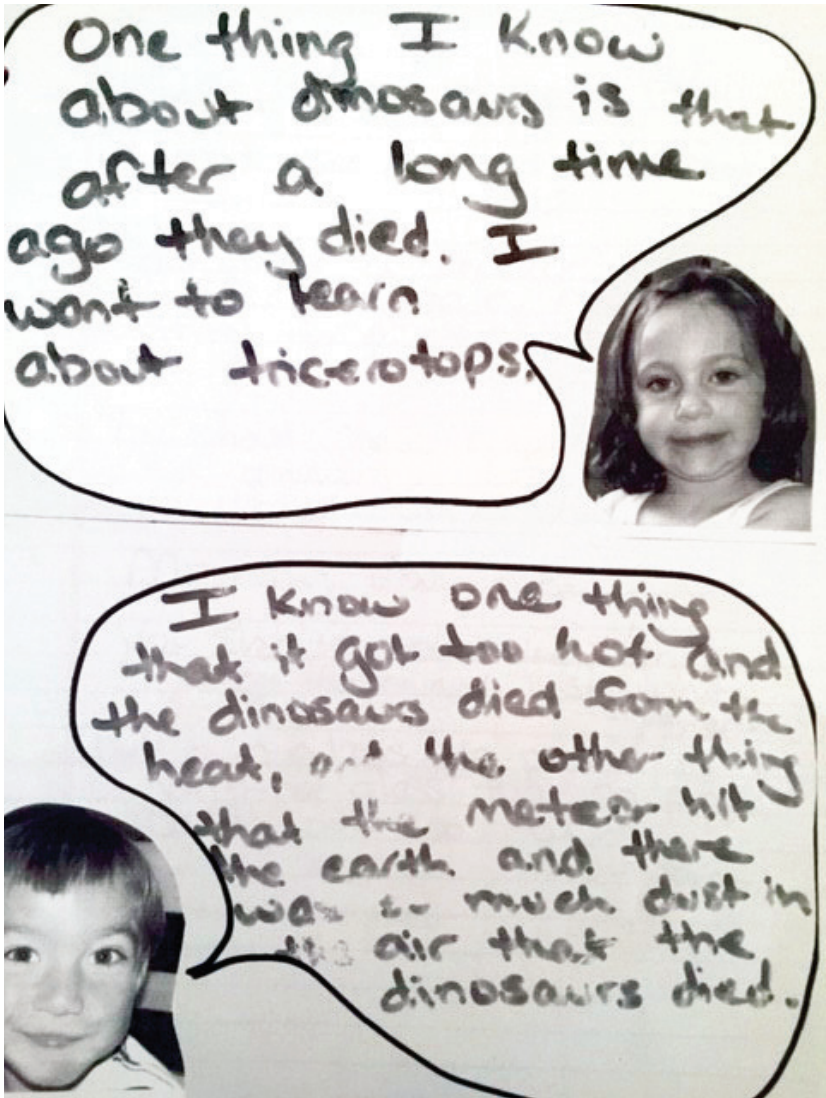 One thing I know
about dinosaurs is that
after a long time
ago they died. I
want to learn
about tricerotops.
I know one thing
that it got too hot and
the dinosaurs died from the
heat, and the other thing
that the meteor hit
the earth and there
was so much dust in
the air that the
dinosaurs died.